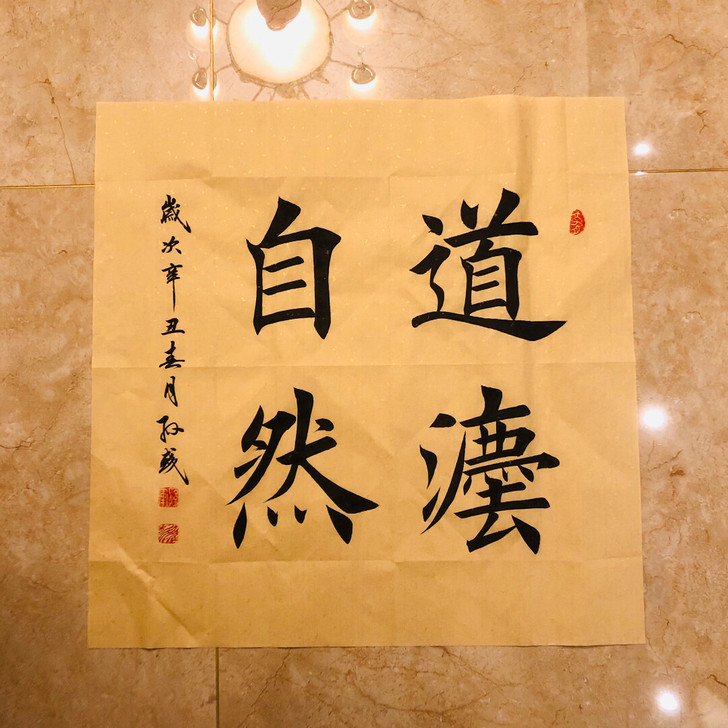 道灋
自然
歲次辛丑春月孙